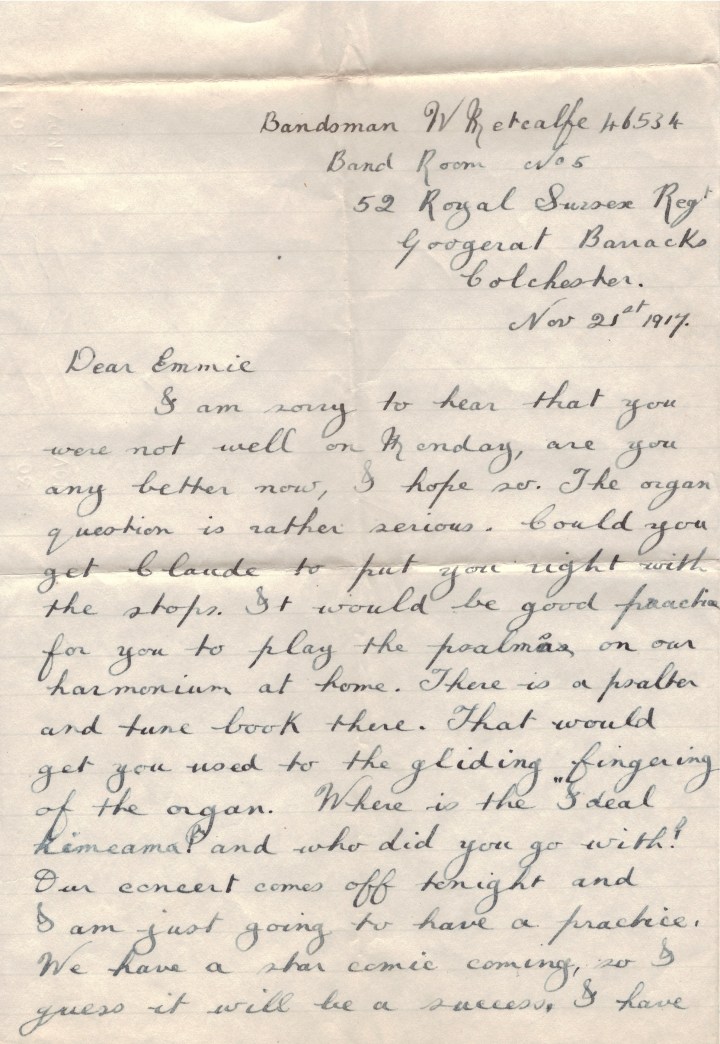 Bandsman W Metcalfe 46534
Band Room No 5
52 Royal Sussex Regt
Googerat Barracks
Colchester.
Nov 21st 1917.
Dear Emmie
I am sorry to hear that you
were not well on Monday, are you
any better now, I hope so. The organ
question is rather serious. Could you
get Claude to put you right with
the stops. It would be good practice
for you to play the psalms on our
harmonium at home. There is a psalter
and tune book there. That would
get you used to the gliding fingering
of the organ. Where is the "Ideal
Kineama? and who did you go with?
Our concert comes off tonight and
I am just going to have a practice.
We have a star comic coming, so I
guess it will be a success. I have